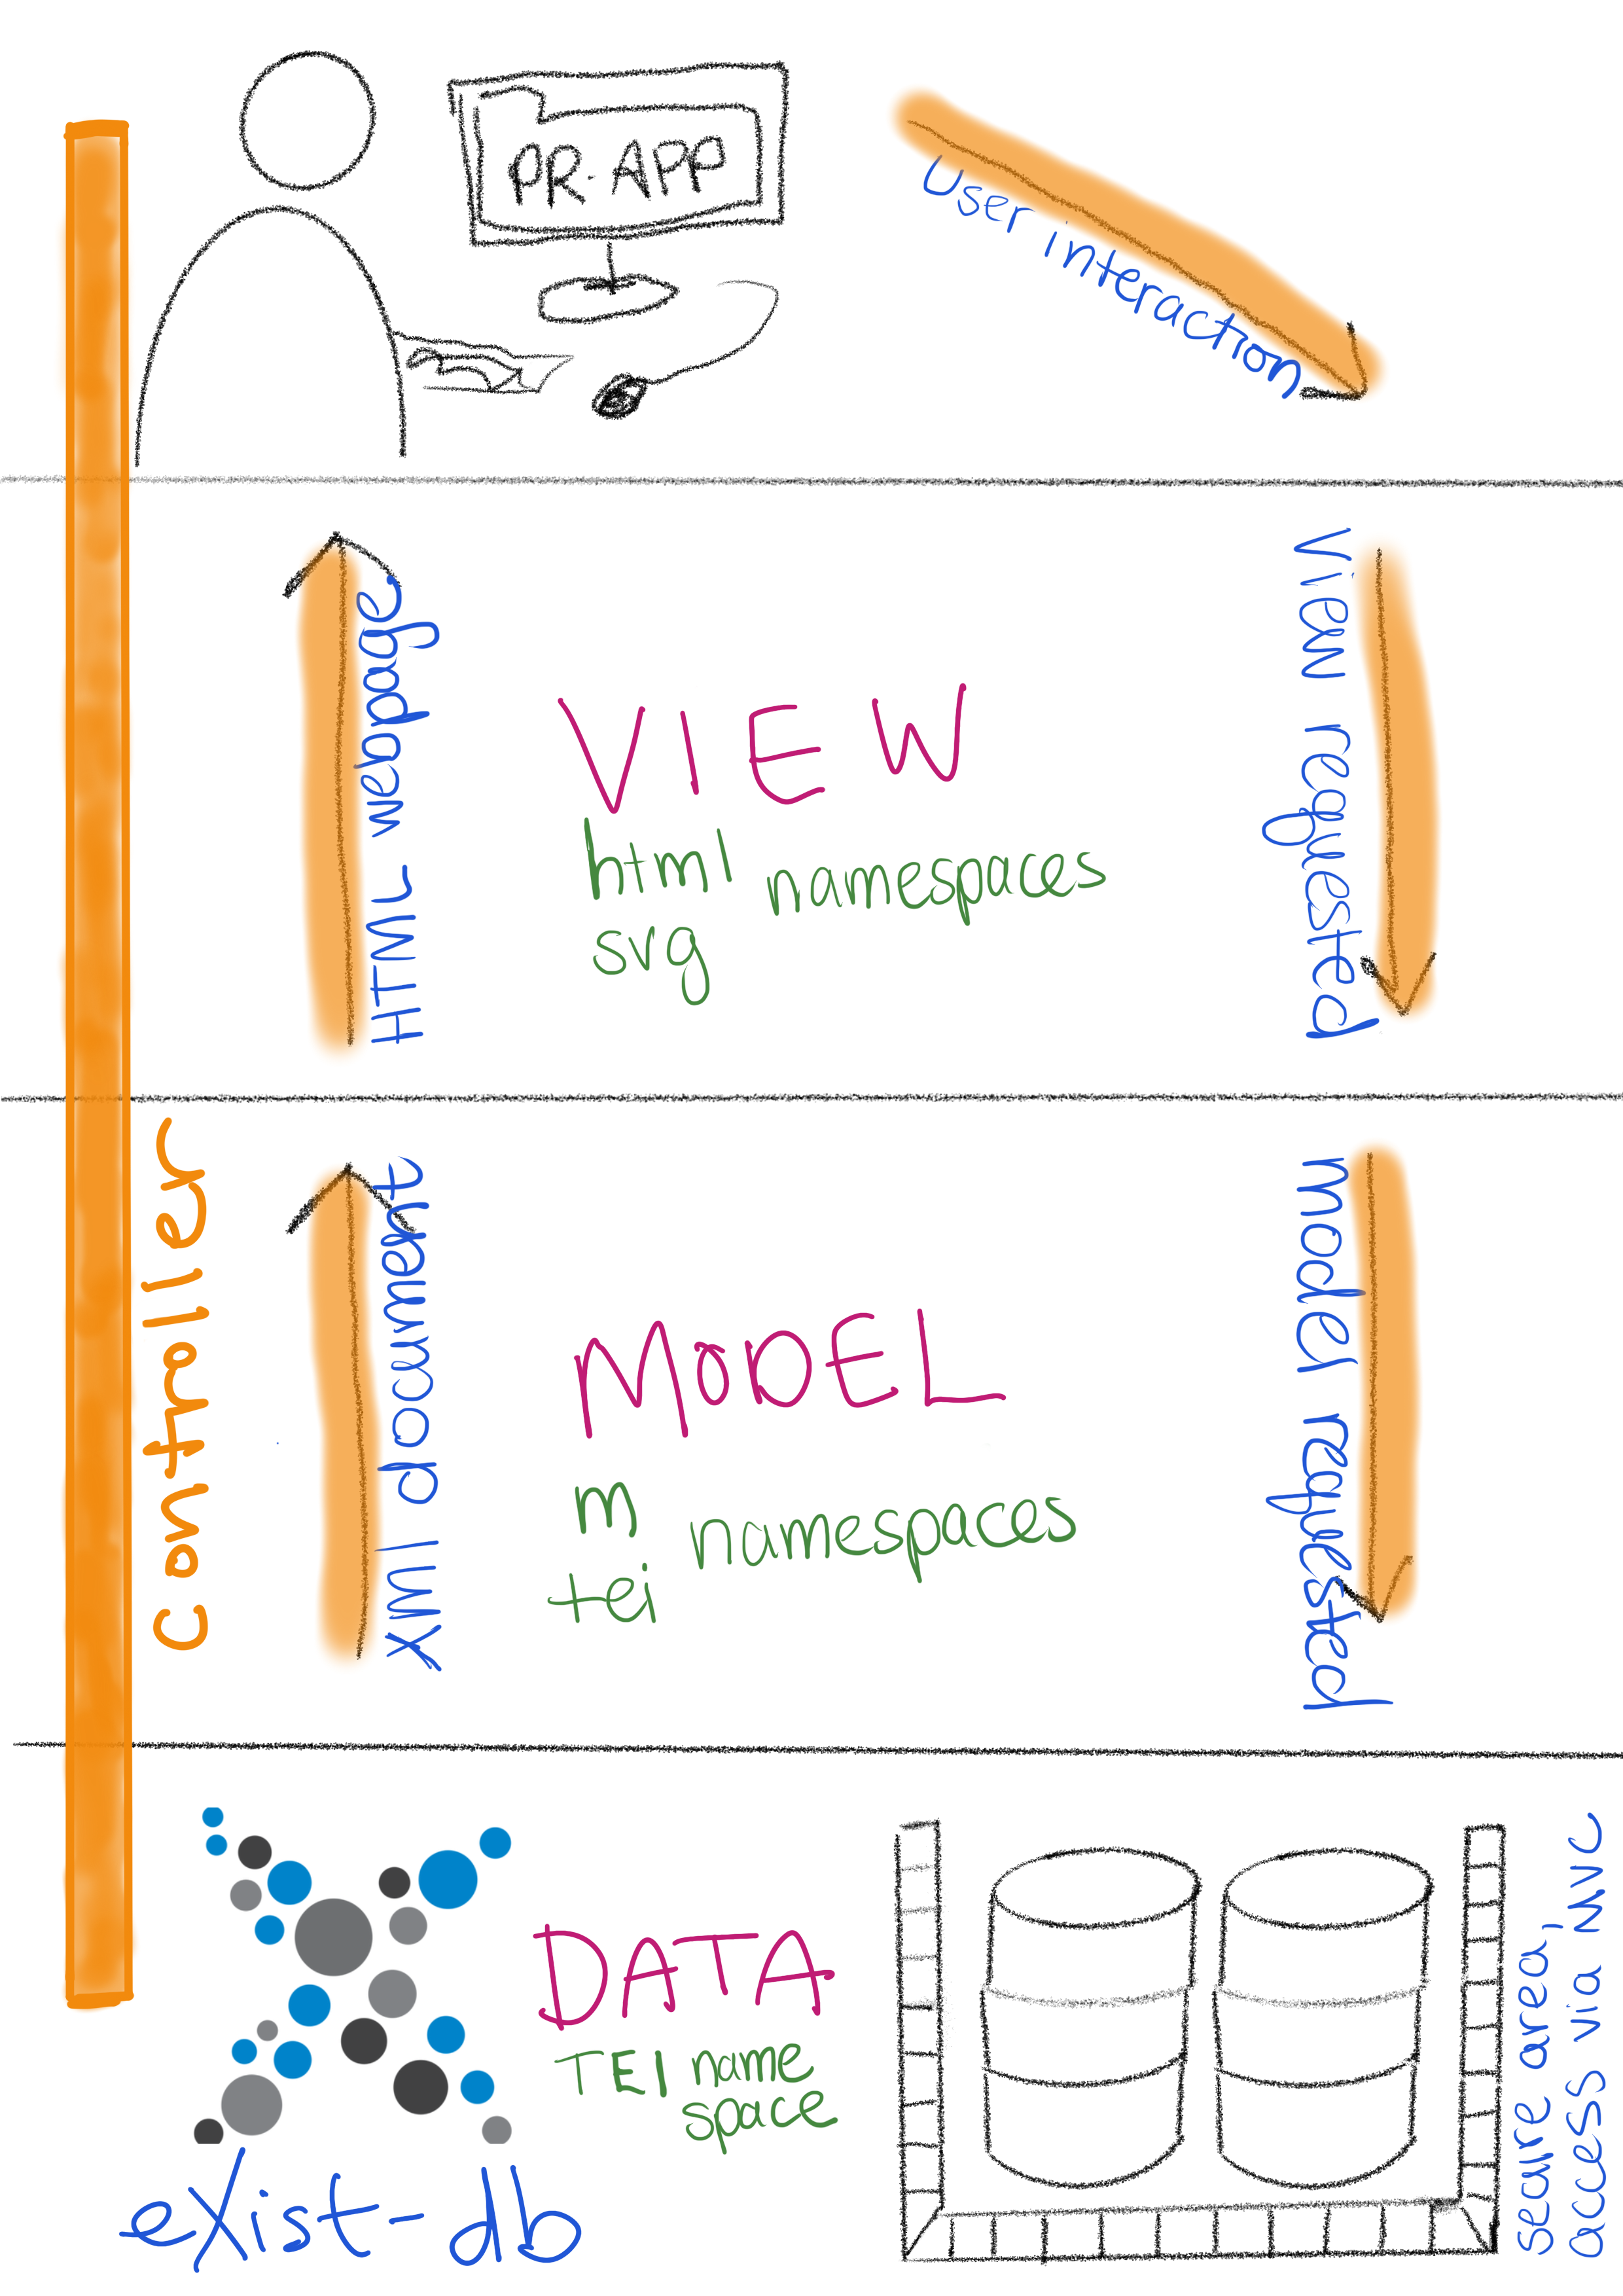 PR-APP
User interaction
HTML webpage
VIEW
html namespaces
svg
View requested
Controller
xml document
MODEL
m namespaces
tei
model requested
eXist-db
DATA
TEI name
space
secure area,
access via MVC